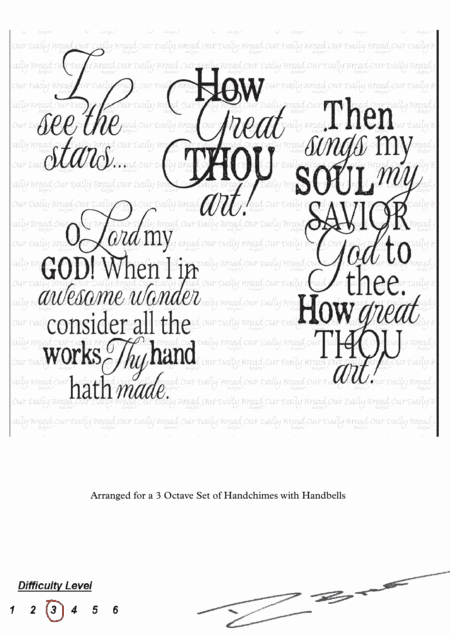 I
see the
stars...
How
Great
THOU
art!
Then
sings my
SOUL my
SAVIOR
God to
thee.
How great
THOU
art!
O Lord my
GOD! When I in
awesome wonder
consider all the
works Thy hand
hath made.
Our Daily Bread
Arranged for a 3 Octave Set of Handchimes with Handbells
Difficulty Level
1 2 3 4 5 6